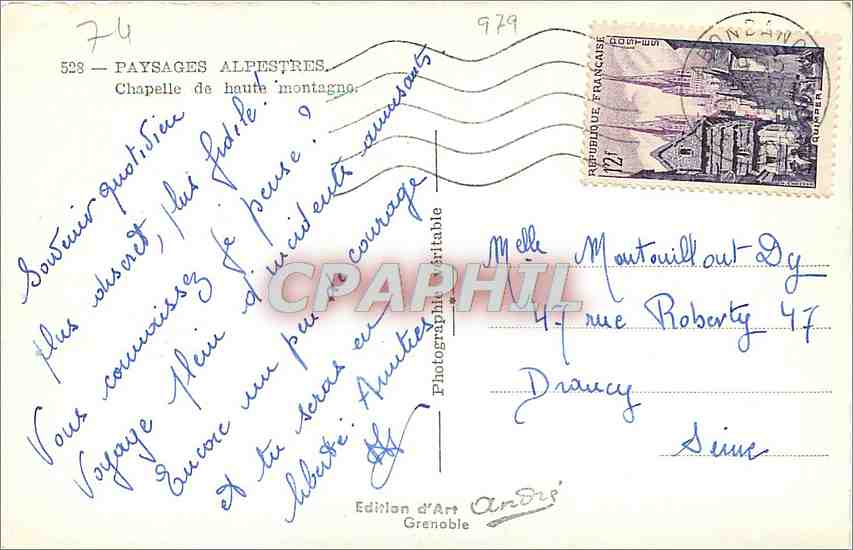 74
979
528 — PAYSAGES ALPESTRES.
Chapelle de haute montagne.
Souvenir quotidien
plus discret, plus fidèle !
Vous connaissez je pense ?
Voyage plein d'incidents amusants.
Encore un peu de courage
et tu seras en
liberté. Amitiés
Photographie véritable
CPAPHIL
ABONDANCE
REPUBLIQUE FRANÇAISE
POSTES
12f
QUIMPER
Melle Montouillout-Dy
47 rue Roberty 47
Drancy
Seine
Edition d'Art André
Grenoble